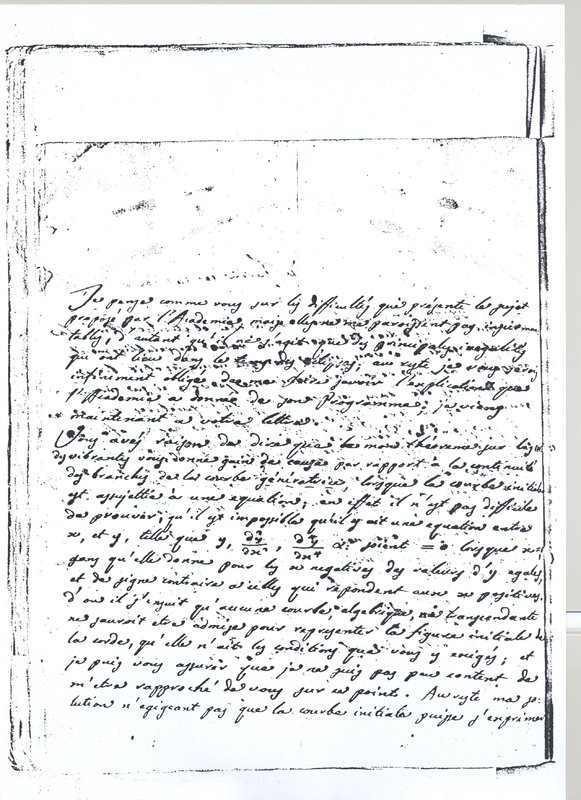 Je pense comme vous sur les difficultés que présente le sujet
proposé par l'Academie, mais elles ne me paroissent pas insurmon
tables, d'autant qu'il ne s'agit que des principales inegalités
qui ont lieu dans le tems des eclipses; au reste je vous serai
infiniment obligé de me faire savoir l'explication que
l'Academie a donnée de son Programme; je viens
maintenant a votre lettre.
Vous avez raison de dire que mon theoreme sur les
des vibrantes vous donne gain de cause par rapport à la continuité
des branches de la courbe génératrice lorsque la courbe initiale
est assujettie a une equation; en effet il n'est pas difficile
de prouver, qu'il est impossible qu'il y ait une equation entre
x, et y, telle que y, d²y/dx², d⁴y/dx⁴ &c. soient = 0 lorsque x=
sans qu'elle donne pour les x negatives des valeurs d'y egales,
et de signe contraire a celles qui repondent aux x positives.
d'ou il s'ensuit qu'aucune courbe algebrique, ou transcendante
ne sauroit etre admise pour representer la figure initiale de
la corde, qu'elle n'ait les conditions que vous y exigés; et
je puis vous assurer que je ne suis pas peu content de
m'etre rapproché de vous sur ce point. Au reste ma so-
lution n'exigeant pas que la courbe initiale puisse s'exprimer